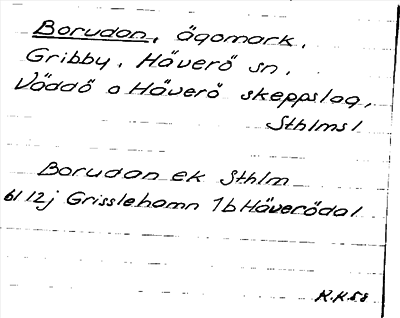 Borudan, ägomark,
Gribby, Häverö sn,
Väddö o Häverö skeppslag,
Sthlms l
Borudan ek Sthlm
61 12j Grisslehamn 1b Häverödal
R.K.58